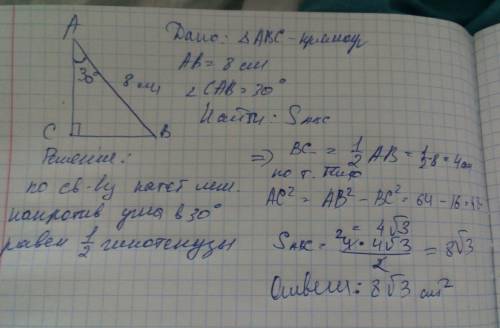 A
30°
8 см
C
B
Дано: △ABC - прямоуг
AB = 8 см
∠CAB = 30°
Найти: S
Решение:
по св-ву катет леж.
напротив угла в 30°
равен 1/2 гипотенузы
=> BC = 1/2 AB = 1/2·8 = 4 см
по т. Пиф
AC² = AB² - BC² = 64 - 16 = 48
= 4√3
S = 4·4√3/2 = 8√3
Ответ: 8√3 см²